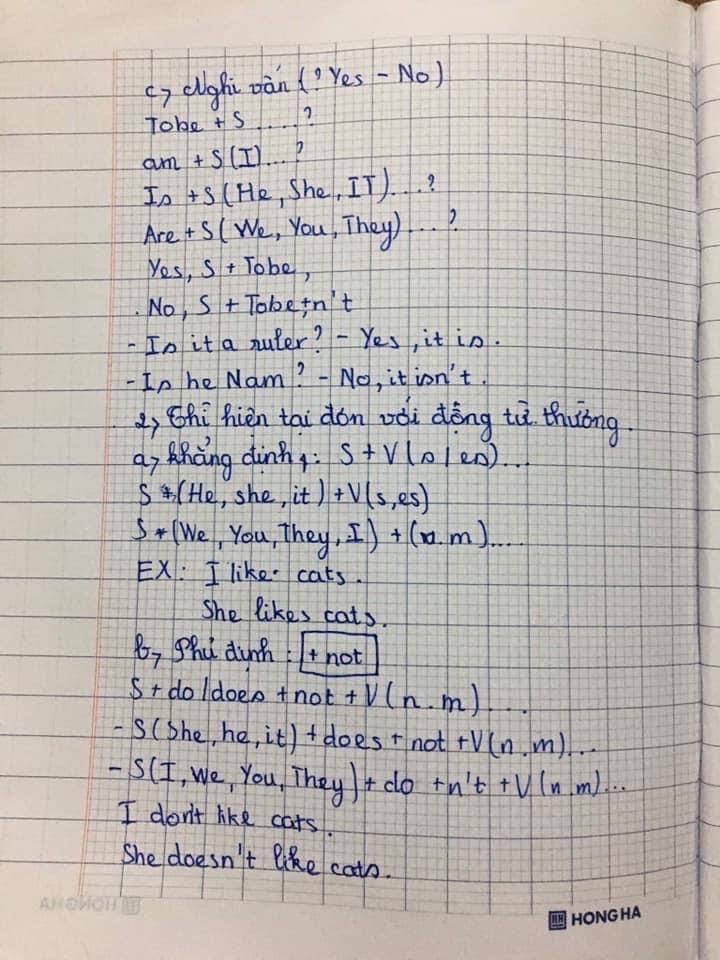 c, Nghi vấn (? Yes - No)
Tobe + S ....?
am + S (I)...?
Is + S (He, She, IT)...?
Are + S (We, You, They)...?
Yes, S + Tobe,
No, S + Tobe+n't
- Is it a ruler? - Yes, it is.
- Is he Nam? - No, it isn't.
2, Thì hiện tại đơn với động từ thường.
a, khẳng định: S + V (s/es)...
S *(He, she, it) + V(s,es)
S *(We, You, They, I) + (n.m)....
EX: I like cats.
She likes cats.
b, Phủ định: + not
S + do/does + not + V (n.m)....
- S (She, he, it) + does + not + V (n.m)...
- S (I, We, You, They) + do + n't + V (n.m)...
I don't like cats.
She doesn't like cats.
HONG HA